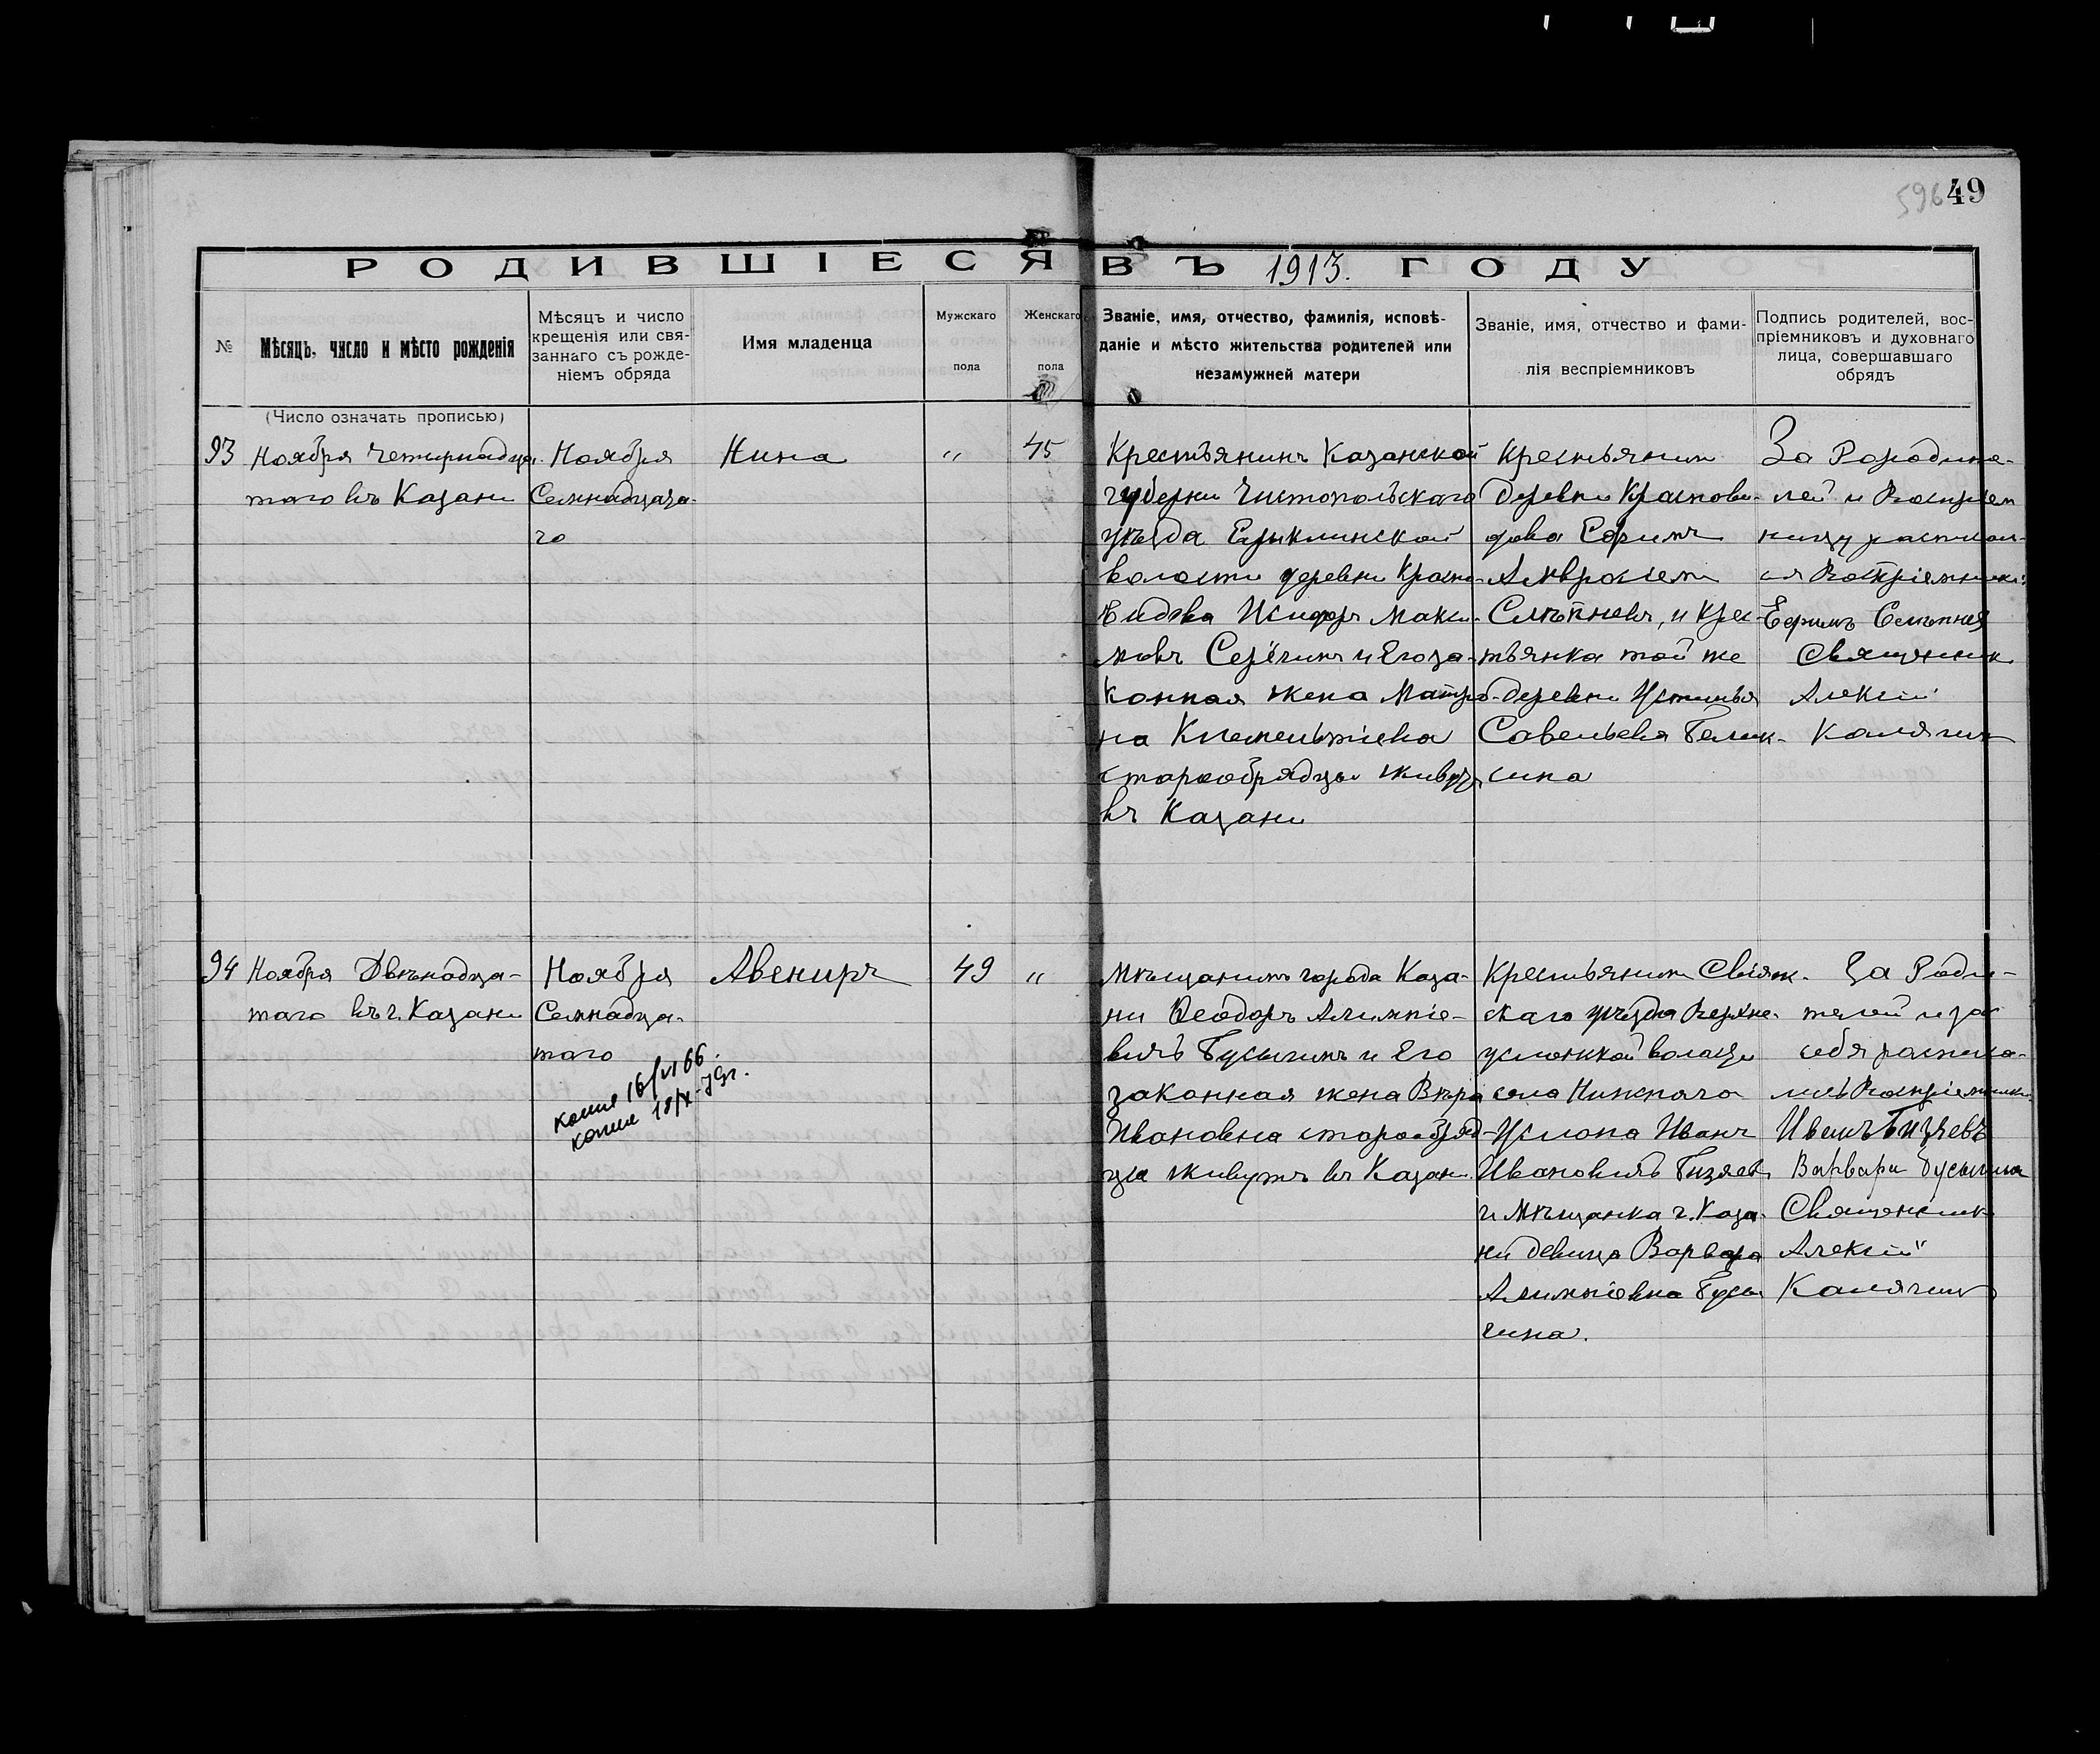 596 49
РОДИВШІЕСЯ ВЪ 1913. ГОДУ
№
Мѣсяцъ, число и мѣсто рожденія
Мѣсяцъ и число
крещенія или свя-
заннаго съ рожде-
ніемъ обряда
Имя младенца
Мужскаго
пола
Женскаго
пола
Званіе, имя, отчество, фамилія, исповѣ-
даніе и мѣсто жительства родителей или
незамужней матери
Званіе, имя, отчество и фами-
лія веспріемниковъ
Подпись родителей, вос-
пріемниковъ и духовнаго
лица, совершавшаго
обрядъ
(Число означать прописью)
93
Ноября Четырнадца-
таго въ Казани
Ноября
Семнадцата-
го
Нина
"
45
Крестьянинъ Казанской
губерни Чистопольскаго
уѣзда Ерыклинской
волости деревни Красно-
Видова Исидоръ Макси-
мовъ Серёгинъ и Его за-
конная жена Матро-
на Климентьева
старообрядцы живутъ
въ Казани
Крестьянин
деревни Краснови-
дова Ефимъ
Амвросіем
Слѣпневъ, и Крес-
тьянка той же
деревни Устинья
Савельева Белик-
сина
За Рородите-
лей и Воспріем
ницу расписал-
ся Воспріемникъ:
Ефимъ Слѣпнев
Священник
Алексій
Калягин
94
Ноября Двѣнадца-
таго въ г. Казани
Ноября
Семнадца-
таго
копия 16/VI 66.
копия 18/X-79г.
Авениръ
49
"
Мѣщанинъ города Каза-
ни Ѳеодоръ Алимпіе-
вичъ Бусыгинъ и Его
законная жена Вѣра
Ивановна старообряд-
цы живутъ въ Казани.
Крестьянин Свіяж-
скаго уѣзда Верхне-
услонской волости
села Нижняго
Услона Иванъ
Ивановичъ Бизяев
и Мѣщанка г. Каза-
ни девица Варвара
Алимпіевна Бусы
гина.
За Роди-
телей и за
себя расписа-
лись Воспріемники
Иванъ Бизяевъ
Варвара Бусыгина
Священник
Алексій
Калягин